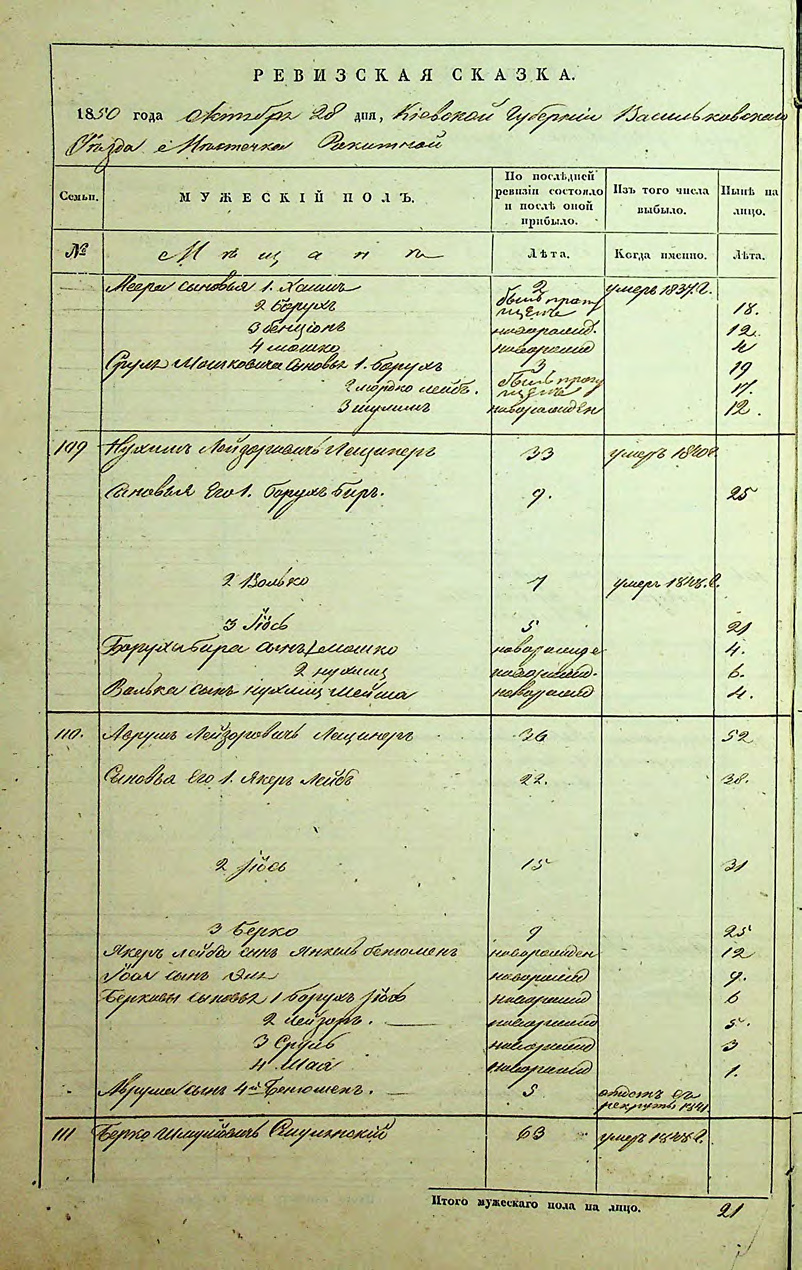 РЕВИЗСКАЯ СКАЗКА.
1850 года Октября 28 дня, Кіевской Губерніи Васильковскаго
Уѣзда Мѣстечка Ракитной
Семьи. МУЖЕСКІЙ ПОЛЪ. По послѣдней ревизіи состояло и послѣ оной прибыло. Изъ того числа выбыло. Нынѣ на лицо.
№ Мѣщанъ Лѣта. Когда именно. Лѣта.
Меера сыновья 1. Хаимъ 2 умеръ 1837г.
2 Борухъ былъ 18.
3 Бенціонъ новорожд. 12
4 Мошко новорожд 4
Сруля Мошковича сыновья 1. Борухъ 3 19
2 Мордко Лейбъ. былъ 17.
3 Шулимъ новорожден 12.
109 Нухимъ Лейзоровичъ Лещинеръ 33 умеръ 1840г.
Сыновья Его 1. Борухъ Биръ. 9. 25
2 Волько 7 умеръ 1848.г.
3 Іось 5 21
Борухъ Бира сынъ 1 Мошко новорожде 4.
2 Нухимъ новорожд. 6.
Волька сынъ Нухимъ новорожд 4.
110. Аврумъ Лейзоровичъ Лещинеръ 36 52
Сыновья Его 1. Якеръ Лейбъ 22. 38.
2 Іось 15 31
3 Берко 9 25
Якеръ Лейба сынъ Янкель Бенюменъ новорожден 12
Іося сынъ новорожд 9.
Берковы сыновья 1 Борухъ Іось новорожд 6
2 Лейзоръ. новорожд 5.
3 Сруль новорожд 3
4 Шая новорожд 1.
Аврума сынъ 4й Бенюменъ. 5 отданъ въ рекруты 1841
111 Берко Шмулёвичъ 63 умеръ 1848г.
Итого мужескаго пола на лицо. 21